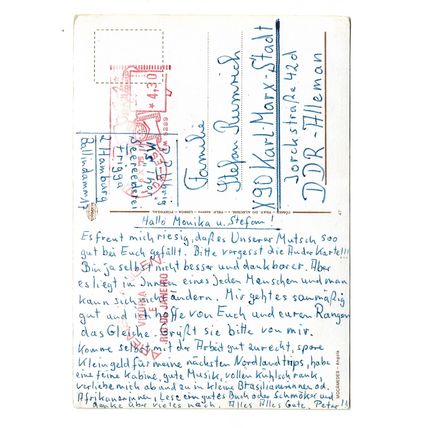 Hallo Monika u. Stefan!
Es freut mich riesig, daß es Unserer Mutsch soo
gut bei Euch gefällt. Bitte vergesst die Ander Karte!!!
Bin ja selbst nicht besser und dankbarer. Aber
es liegt im Innern eines jeden Menschen und man
kann sich ändern. Mir geht es saumäßig
gut und hoffe von Euch und euren Rangen
das Gleiche. Grüßt sie bitte von mir.
Komme selbst mit der Arbeit gut zurecht, spare
Kleingeld für meine nächsten Nordlandtrips, habe
eine feine Kabine, gute Musik, vollen Kühlschrank,
verliebe mich ab und zu in kleine Brasilianerinnen od.
Afrikanerinnen, Lese ein gutes Buch oder Schmöker und
denke über vieles nach. Alles Alles Gute. Peter!!
Familie
Stefan Rumrich
X90 Karl-Marx-Stadt
Jorckstraße 42d
DDR - Alleman
Seereederei
Frigga
2 Hamburg
Ballindamm 17
4,30
RIO DE JANEIRO
MOÇAMEDES - Angola